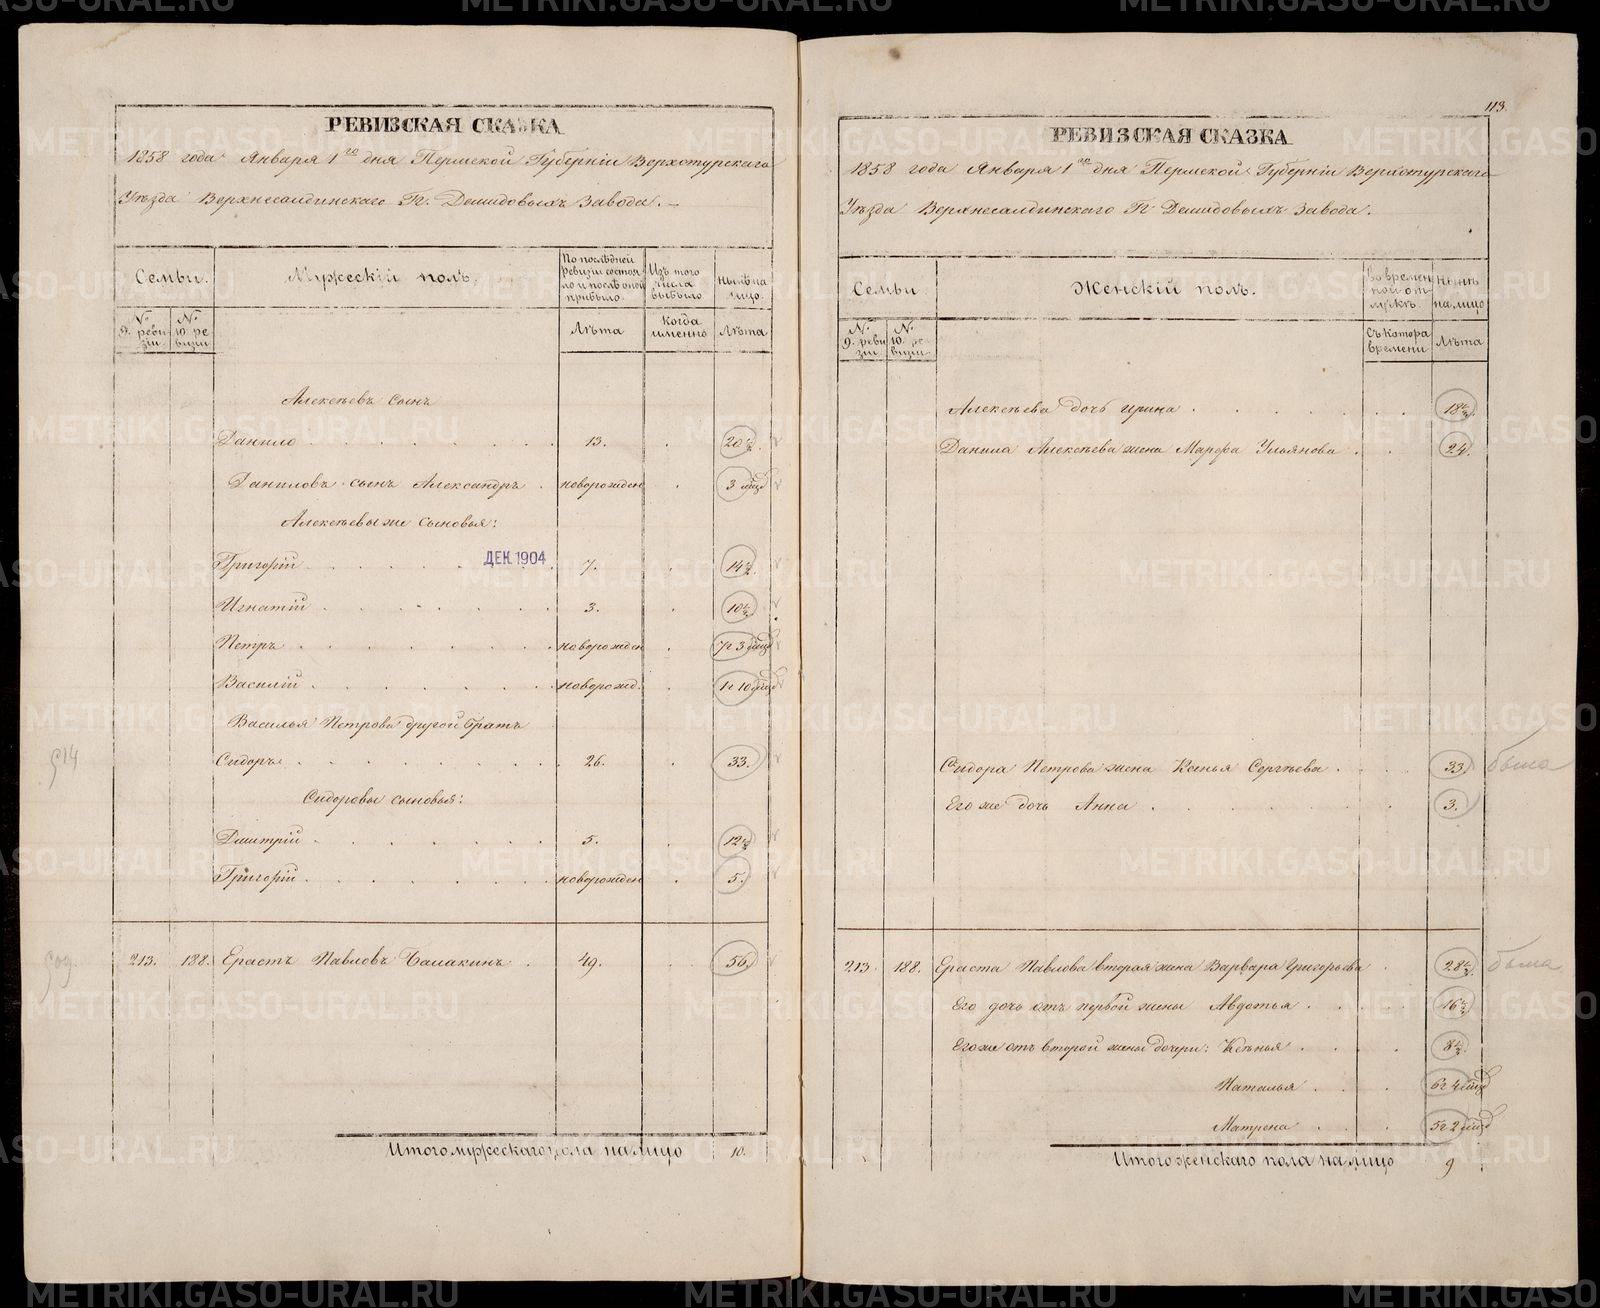 РЕВИЗСКАЯ СКАЗКА
1858 года Января 1го дня Пермской Губерніи Верхотурскаго
Уѣзда Верхнесалдинскаго Гг. Демидовыхъ Завода.
Семьи. Мужескій полъ. По послѣдней ревизіи состояло и послѣ оной прибыло. Изъ того числа выбыло Нынѣ на лицо.
№ 9. ревизіи. № 10. ревизіи Лѣта Когда именно Лѣта
Алексѣевъ сынъ
Данило 13. 20½.
Даниловъ сынъ Александръ новорожден 3 мцд
Алексѣевы же сыновья:
Григорій ДЕК 1904 7. 14½.
Игнатій 3. 10½
Петръ новорожден 7г 3 мцд
Василій новорожд. 1г 10 мцд
Василья Петрова другой братъ
Сидоръ 26. 33.
Сидоровы сыновья:
Дмитрій 5. 12½
Григорій новорожден 5.
213. 188. Ерастъ Павловъ Балакинъ 49. 56.
Итого мужескаго пола на лицо 10.
113.
РЕВИЗСКАЯ СКАЗКА
1858 года Января 1го дня Пермской Губерніи Верхотурскаго
Уѣзда Верхнесалдинскаго Гг Демидовыхъ Завода.
Семьи Женскій полъ. Во временной отлучкѣ. Нынѣ на лицо
№ 9. ревизіи № 10. ревизіи Съ котора времени Лѣта
Алексѣева дочь Ирина 18½.
Данила Алексѣева жена Марфа Ульянова 24.
Сидора Петрова жена Ксенья Сергѣева 33
Его же дочь Анна 3.
213. 188. Ераста Павлова вторая жена Варвара Григорьева 28½.
Его дочь отъ первой жены Авдотья 16½
Его же отъ второй жены дочери: Ксенья 8½.
Наталья 6г 4 мцд
Матрена 5г 2 мцд
Итого женскаго пола на лицо 9
METRIKI.GASO-URAL.RU